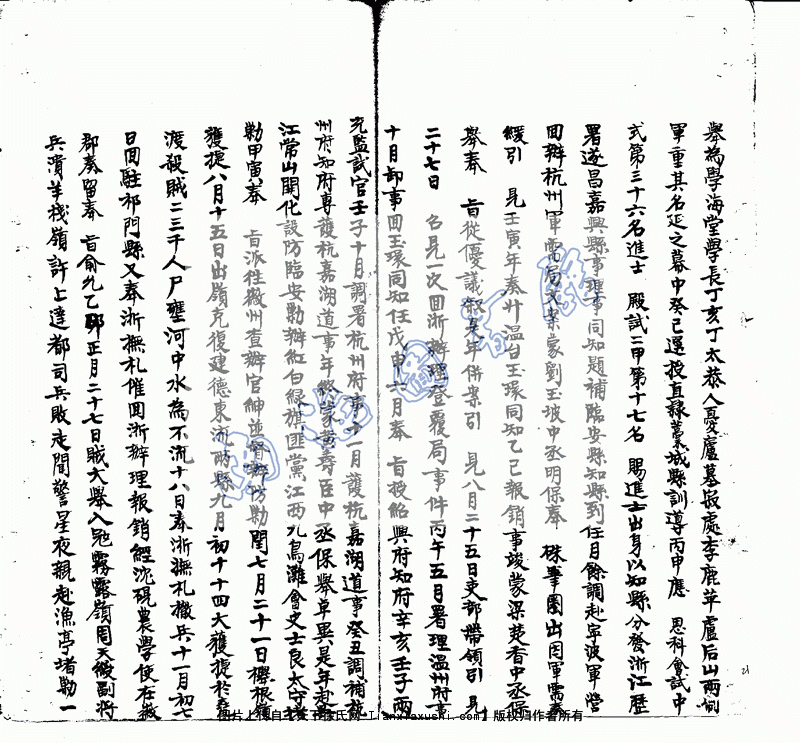 舉為學海堂學長丁亥丁太恭人憂廬墓嚴處李鹿草廬后山兩
軍重其名延之幕中癸己選授直隸藁城縣訓導丙申應 恩科會試中
式第三十六名進士 殿試二甲第十七名 賜進士出身以知縣分發浙江歷
署遂昌嘉興縣事理事同知題補臨安縣知縣到任月餘調赴寧波軍營
回辦杭州軍需局又業家劉玉坡中丞明保奉 硃筆圈出因軍需奏
緩引 見壬寅年奏升溫台玉環同知乙已報銷事竣蒙梁楚香中丞保
舉奉 旨從優議敘是年併案引 見八月二十五日吏部帶領引 見
二十七日 召見一次回浙辦理登覆局事件丙午五月署理溫州府事
十月卸事回玉環同知任戊申六月奉 旨授紹興府知府辛亥壬子兩
充監試官壬子十月調署杭州府事十一月護杭嘉湖道事癸丑調補杭
州府知府專護杭嘉湖道事年 家黃壽臣中丞保舉卓異是年赴
江常山開化設防臨安勦辦紅白綠旗匪黨江西九烏灘會史士良太守
勦甲寅奉 旨派往徽州查辦官紳並督辦防勦閏七月二十一日櫸根嶺
獲捷八月十五日出嶺克復建德東流兩縣九月初十十四大獲捷於
渡殺賊二三千人尸壅河中水為不流十八日奉浙撫札撤兵十一月初七
日回駐祁門縣又奉浙撫札催回浙辦理報銷經沈硯農學使在徽
郡奏留奉 旨俞允乙卯正月二十七日賊大舉入 霧露嶺周天徽副將
兵潰羊棧嶺許上達都司兵敗走聞警星夜親赴漁亭堵勦一
版权归作者所有